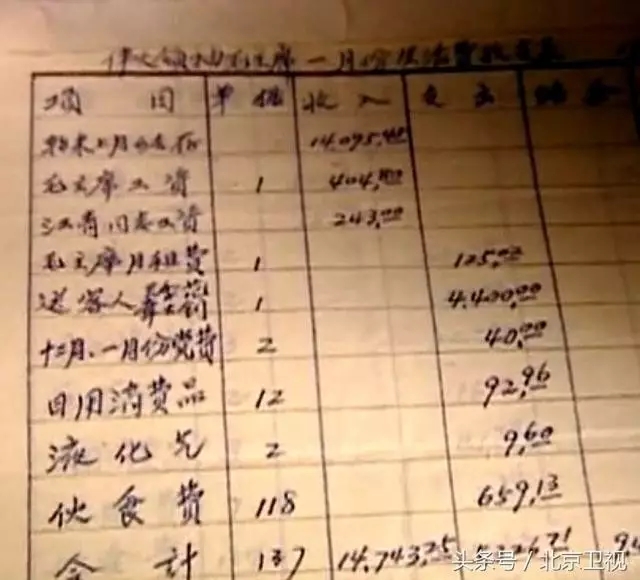 伟大领袖毛主席一月份生活费收支表
项目 单据 收入 支出 结余
转来上月
毛主席工资 1 404.80
江青同志工资 243.00
毛主席月租费 1 125.02
送客人 1 4,400.00
十二月、一月份党费 2 40.00
日用消费品 12 92.96
液化气 2 9.60
伙食费 118 659.13
合计 137 14,743.75 5,326.71
头条号/北京卫视